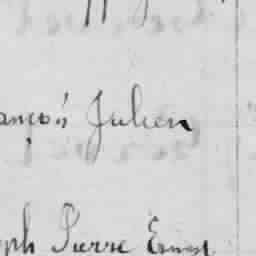 ançois Julien
eph Pierre Ernest